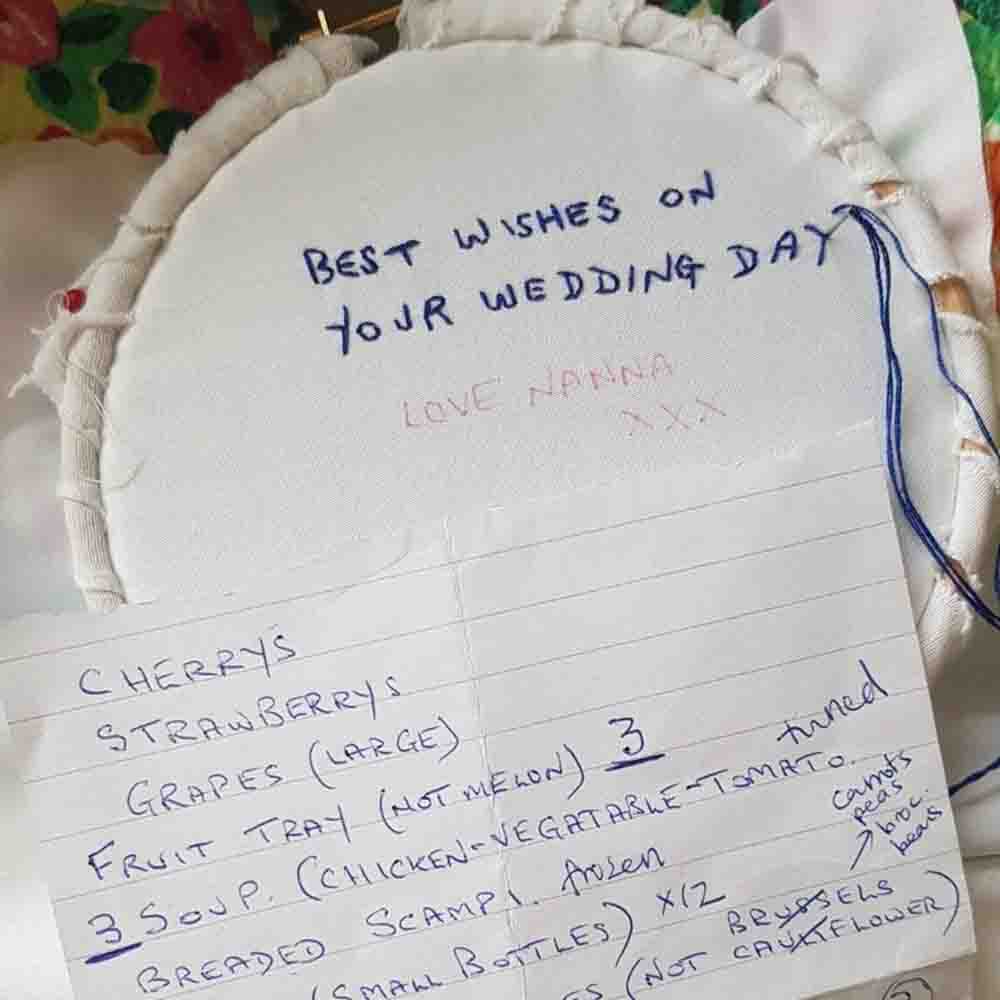 BEST WISHES ON
YOUR WEDDING DAY
LOVE NANNA
XXX
CHERRYS
STRAWBERRYS
GRAPES (LARGE)
FRUIT TRAY (NOT MELON) 3
tinned
3 SOUP. (CHICKEN-VEGATABLE-TOMATO.
BREADED SCAMPI. frozen
carrots
peas
broc.
beans
(SMALL BOTTLES) X12
(NOT BRUSSELS
CAULIFLOWER)